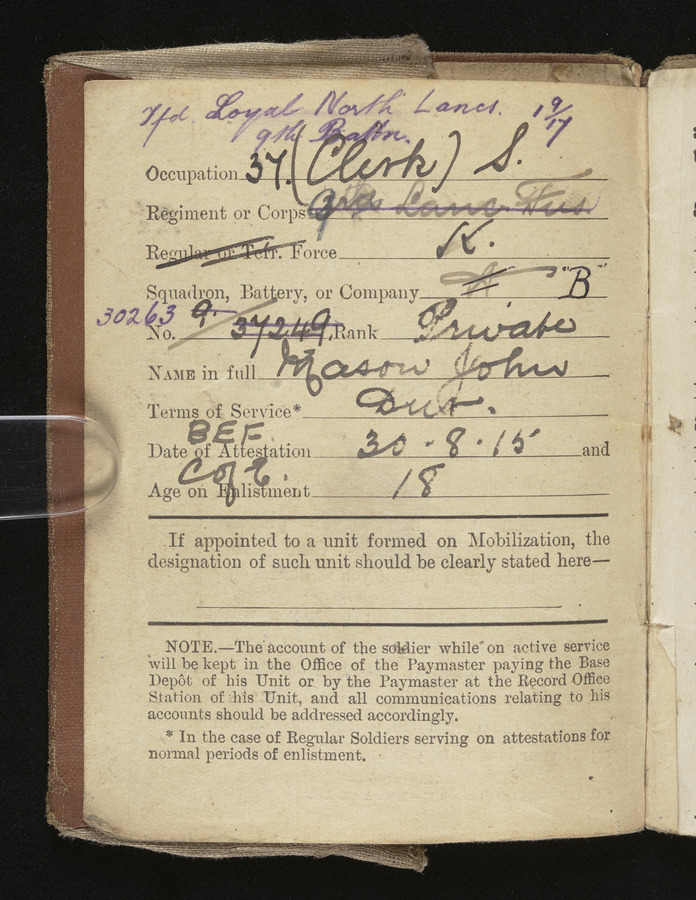 Tfd Loyal North Lancs. 19/17
9th Battn.
Occupation 37. (Clerk) S.
Regiment or Corps Lanc Fus
Regular or Terr. Force K.
Squadron, Battery, or Company A "B"
30263 9
No. 37249 Rank Private
NAME in full Mason John
Terms of Service* Dur.
BEF
Date of Attestation 30.8.15 and
C of E.
Age on Enlistment 18
If appointed to a unit formed on Mobilization, the
designation of such unit should be clearly stated here—
NOTE.—The account of the soldier while on active service
will be kept in the Office of the Paymaster paying the Base
Depôt of his Unit or by the Paymaster at the Record Office
Station of his Unit, and all communications relating to his
accounts should be addressed accordingly.
* In the case of Regular Soldiers serving on attestations for
normal periods of enlistment.